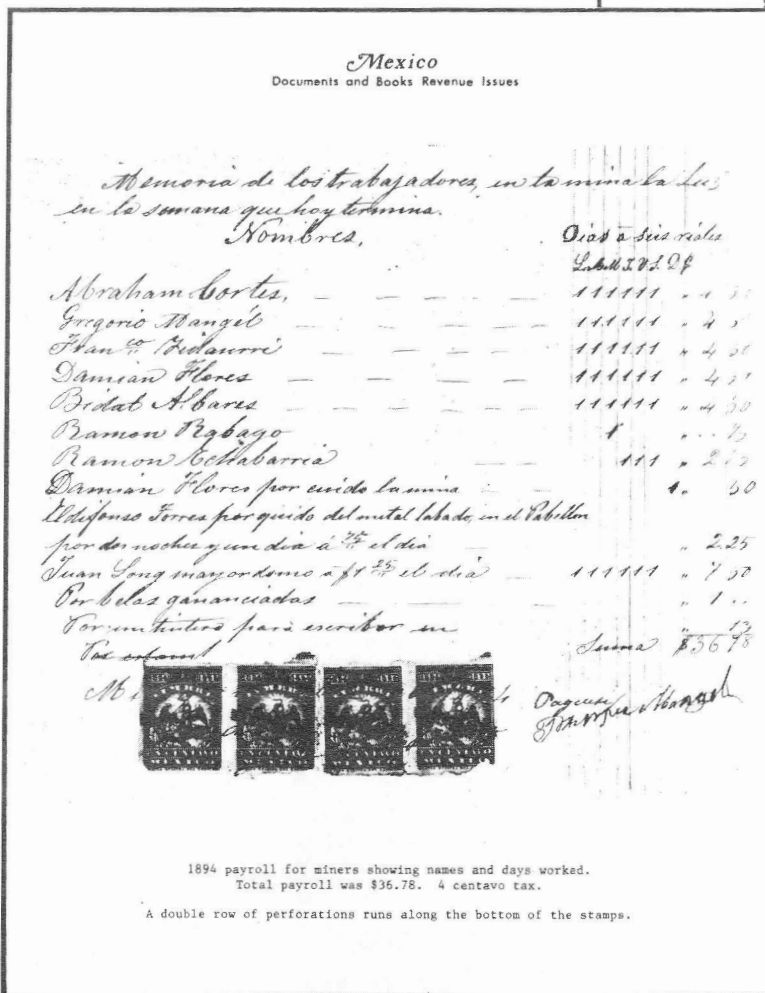 Mexico
Documents and Books Revenue Issues
Memoria de los trabajadores, en la mina la Luz
en la semana que hoy termina.
Nombres. Dias a seis reales
L. M. M. J. V. S. D. $
Abraham Cortes, 111111 "
Gregorio Mangél 111111 " 4
Fran co 111111 " 4
Damian Flores 111111 " 4
Bidal Albares 111111 " 4 50
Ramon Rabago 1 "
Ramon Echabarria 111 " 2
Damián Flores por cuido la mina 1 " 50
Ildifonso Torres por quido del metal labado, en el Pabellon
por dos noches y un dia á 75 el dia " 2.25
Juan Long mayordomo a $1 25 el dia 111111 " 7 50
Por belas gananciadas " 1 ..
Por un tintero para escribir en " 13
Suma $36 78
MEXICO MEXICO MEXICO MEXICO
Mangel
1894 payroll for miners showing names and days worked.
Total payroll was $36.78. 4 centavo tax.
A double row of perforations runs along the bottom of the stamps.